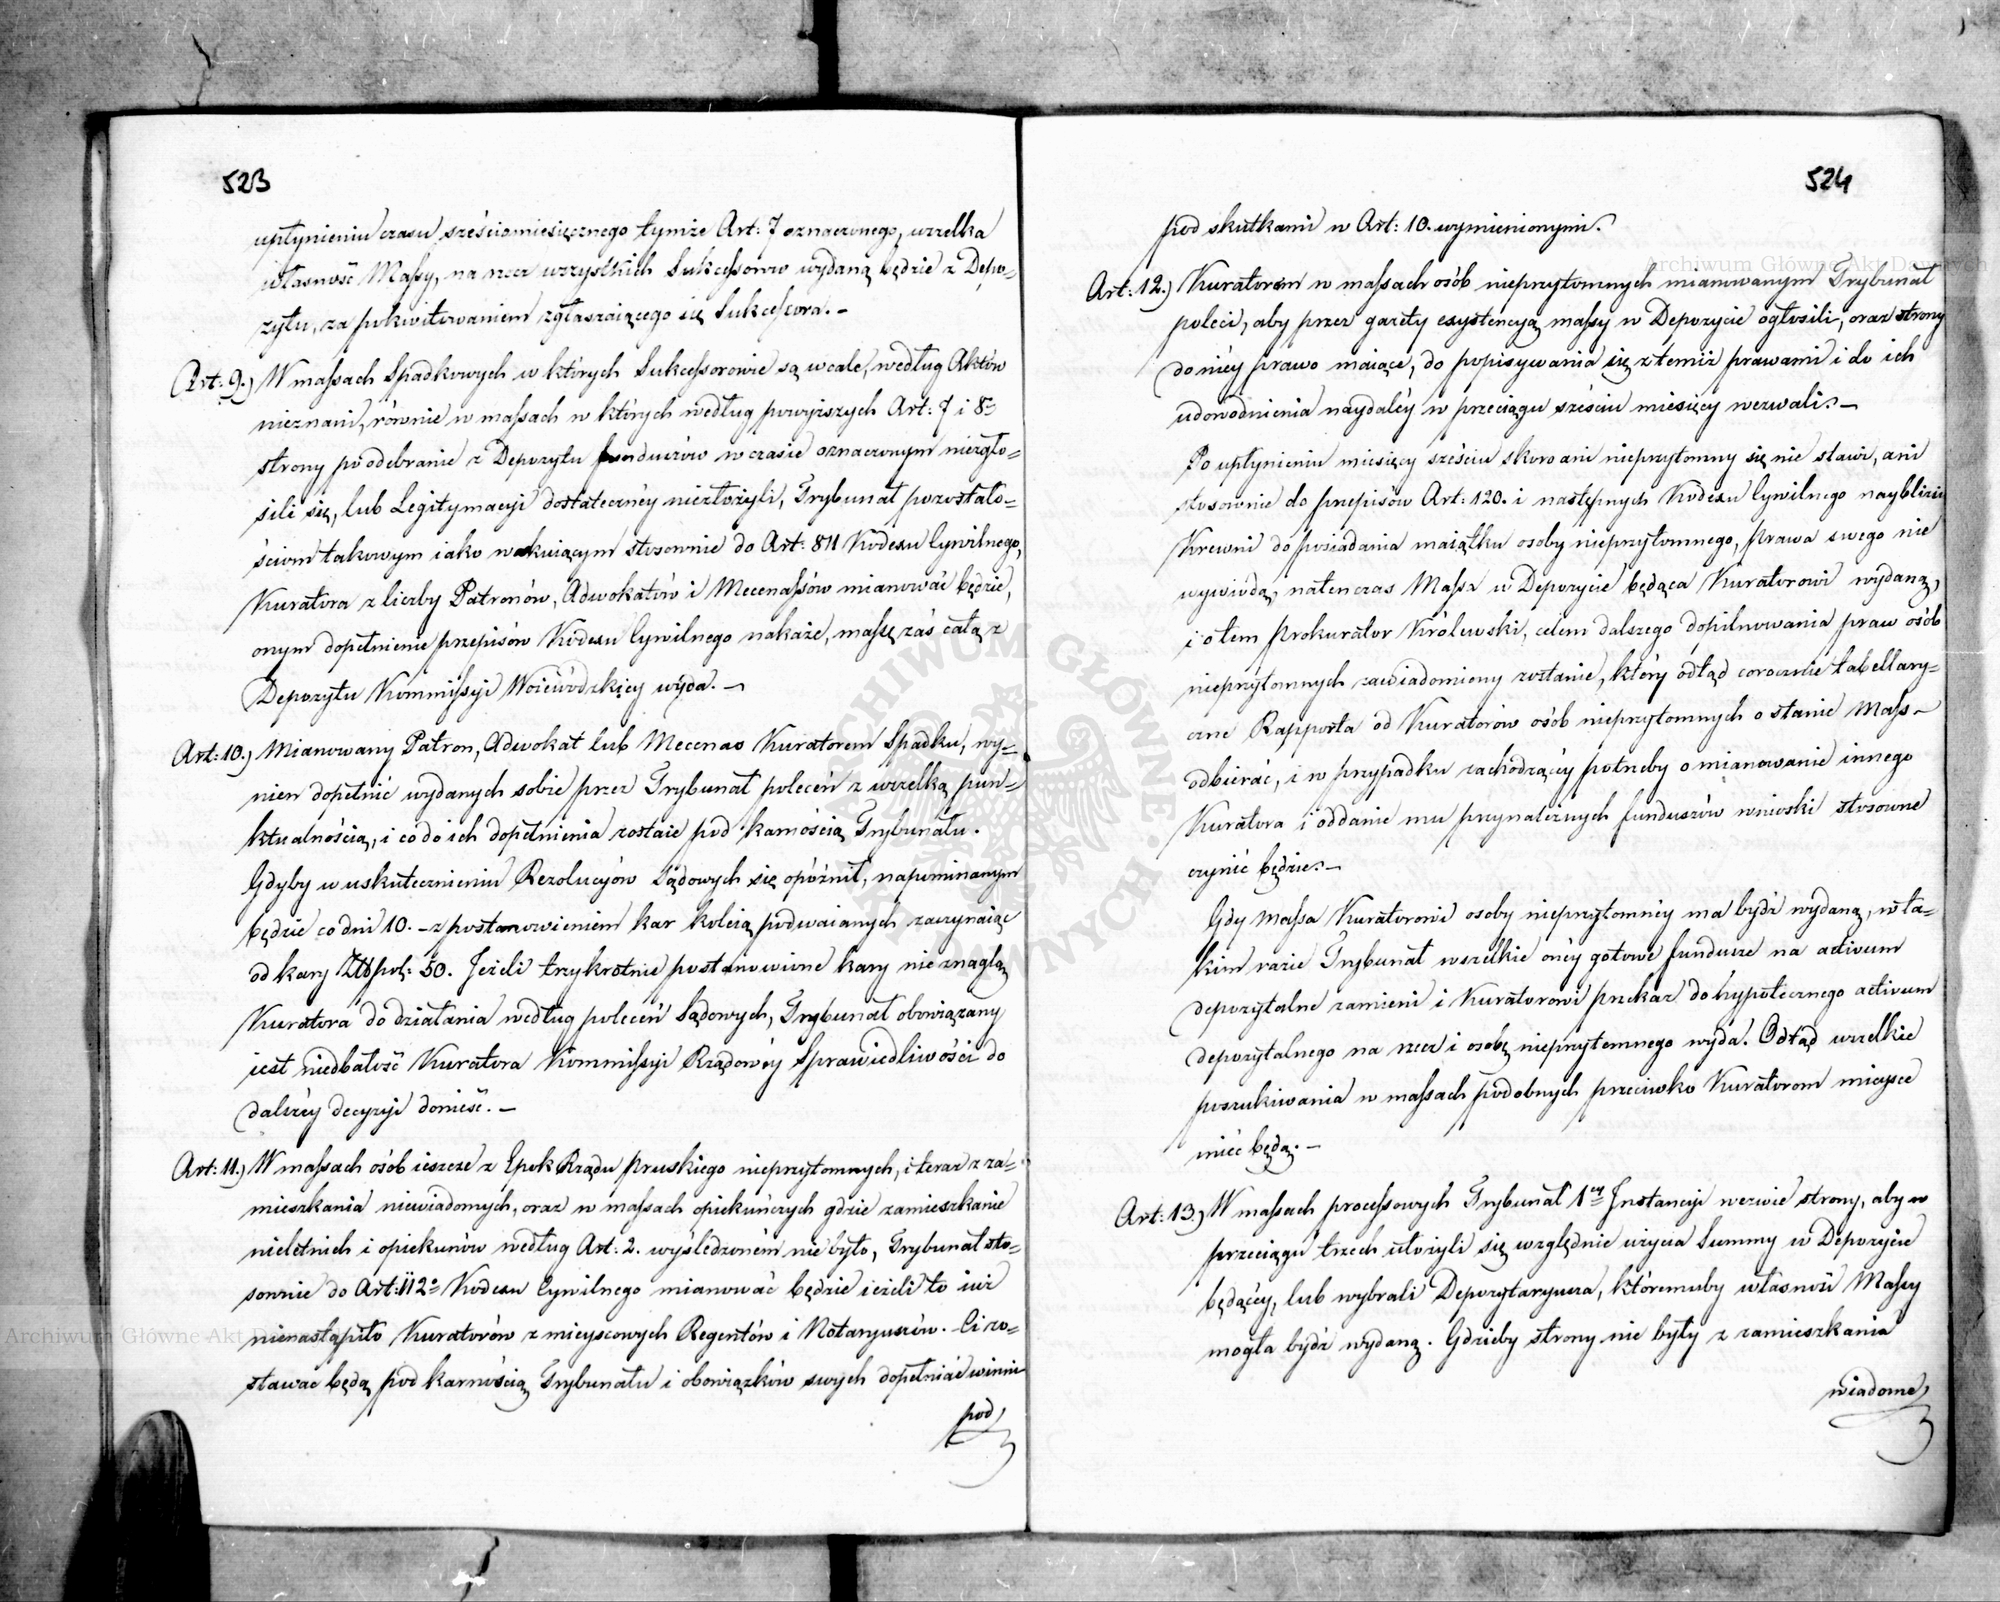 523
upłynieniu czasu sześciomiesięcznego tymże Art: 7 oznaczonego, wszelka
własność Massy, na rzecz wszystkich Sukcessorów wydaną będzie z Depo=
zytu, za pokwitowaniem zgłaszaiącego się Sukcessora. –
Art: 9.) W massach Spadkowych w których Sukcessorowie są wcale, według Aktów
nieznani, równie w massach w których według powyższych Art: 7 i 8º
strony po odebranie z Depozytu funduszów w czasie oznaczonym niezgło=
sili się, lub Legitymacyi dostateczney niezłożyli, Trybunał pozostało=
ściom takowym iako wakuiącym stosownie do Art: 811 Kodexu Cywilnego,
Kuratora z liczby Patronów, Adwokatów i Mecenassów mianować będzie,
onym dopełnienie przepisów Kodexu Cywilnego nakaże, massę zaś całą z
Depozytu Kommissyi Woiewódzkiey wyda. –
Art: 10.) Mianowany Patron, Adwokat lub Mecenas Kuratorem Spadku, wy=
nien dopełnić wydanych sobie przez Trybunał poleceń z wszelką pun=
ktualnością, i co do ich dopełnienia zostaie pod karnością Trybunału.
Gdyby w uskutecznieniu Rezolucyów Sądowych się opóźnił, napominanym
będzie co dni 10. – z postanowieniem kar koleią podwaianych zaczynaiąc
od kary Złł pol: 50. Jeżeli trzykrotnie postanowione kary nie znaglą
Kuratora do działania według poleceń Sądowych, Trybunał obowiązany
iest niedbałość Kuratora Kommissyi Rządowéy Sprawiedliwości do
dalszéy decyzyi donieść. –
Art: 11.) W massach osób ieszcze z Epok Rządu Pruskiego nieprzytomnych, i teraz z za=
mieszkania niewiadomych, oraz w massach opiekuńczych gdzie zamieszkanie
nieletnich i opiekunów według Art: 2. wyśledzoném nie było, Trybunał sto=
sownie do Art: 112º Kodexu Cywilnego mianować będzie ieżeli to iuż
nienastąpiło Kuratorów z mieyscowych Regentów i Notaryuszów. Ci zo=
stawać będą pod karnością Trybunału i obowiązków swych dopełniać winni
pod
524
pod skutkami w Art: 10. wymienionymi. –
Art: 12.) Kuratorom w massach osób nieprzytomnych mianowanym Trybunał
poleci, aby przez gazety exystencyą massy w Depozycie ogłosili, oraz strony
do niéy prawo maiące, do popisywania się z temiż prawami i do ich
udowodnienia naydaléy w przeciągu sześciu miesięcy wezwali. –
Po upłynieniu miesięcy sześciu skoro ani nieprzytomny się nie stawi, ani
stosownie do przepisów Art: 120. i następnych Kodexu Cywilnego nayblizsi
Krewni do posiadania maiątku osoby nieprzytomnego, prawa swego nie
wywiodą, natenczas Massa w Depozycie będąca Kuratorowi wydaną,
i o tem Prokurator Królewski, celem dalszego dopilnowania praw osób
nieprzytomnych zawiadomiony zostanie, który odtąd corocznie tabellary=
czne Rapporta od Kuratorów osób nieprzytomnych o stanie Mass –
odbierać, i w przypadku zachodzącéy potrzeby o mianowanie innego
Kuratora i oddanie mu przynależnych funduszów wnioski stosowne
czynić będzie. –
Gdy Massa Kuratorowi osoby nieprzytomnéy ma bydź wydaną, w ta=
kim razie Trybunał wszelkie onéy gotowe fundusze na activum
depozytalne zamieni i Kuratorowi przekaz do hypotecznego activum
depozytalnego na rzecz i osobę nieprzytomnego wyda. Odtąd wszelkie
poszukiwania w massach podobnych przeciwko Kuratorom mieysce
mieć będą. –
Art: 13.) W massach processowych Trybunał 1ey Instancyi wezwie strony, aby w
przeciągu trzech ułożyli się względnie użycia Summy w Depozycie
będącéy, lub wybrali Depozytaryusza, któremuby własność Massy
mogła bydź wydaną. Gdzieby strony nie były z zamieszkania
wiadome
ARCHIWUM GŁÓWNE AKT DAWNYCH
Archiwum Główne Akt Dawnych
Archiwum Główne Akt Dawnych